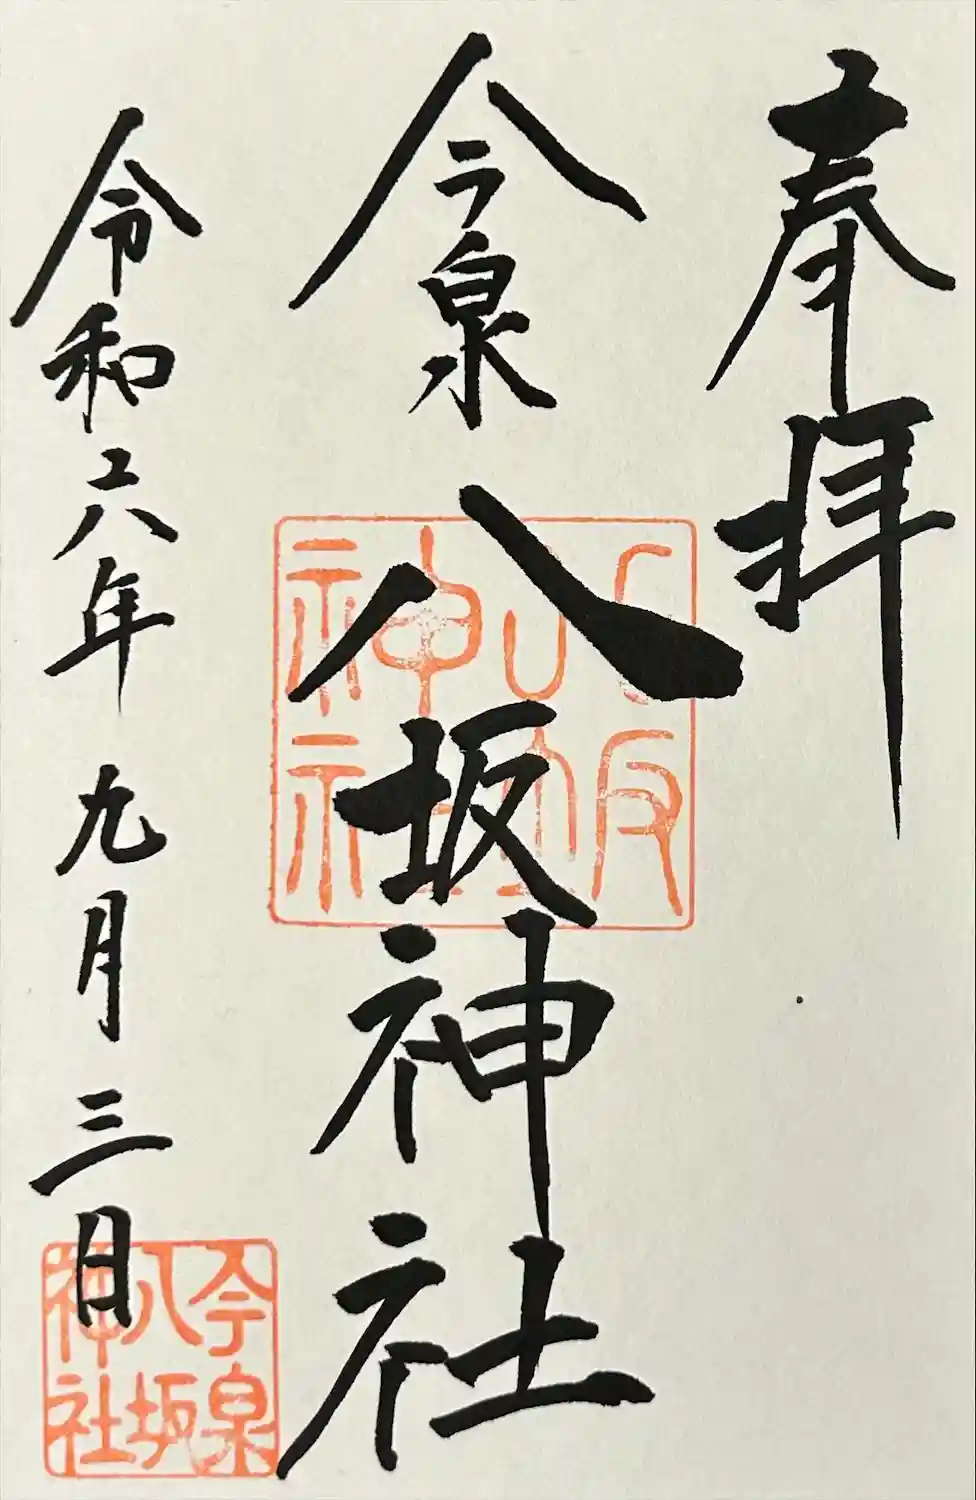 奉拝
今泉八坂神社
八坂神社
令和六年九月三日
今泉八坂神社